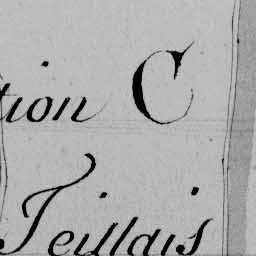 tion C
Teillais